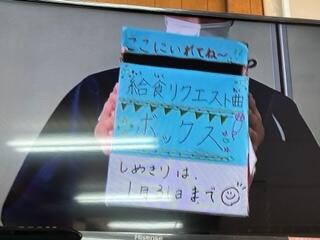 ここにいれてね〜
給食リクエスト曲
ボックス
しめきりは、
1月31日まで
Hisense